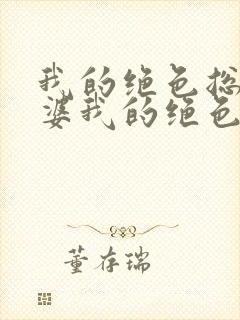 我的绝色总
婆我的绝色
董存瑞